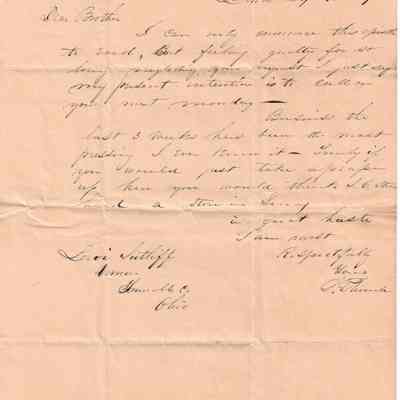 Dear Brother
I can only announce this
to send, But feeling guilty for so
long neglecting your request I just say
my present intention is to call on
you next monday —
Business the
last 3 weeks has been the most
pressing I ever knew it — Surely if
you would just take a peep
up here you would think
and a
In great haste
I am most
Levi Sutliff
Respectfully
Yours
Trumbull Co
Ohio